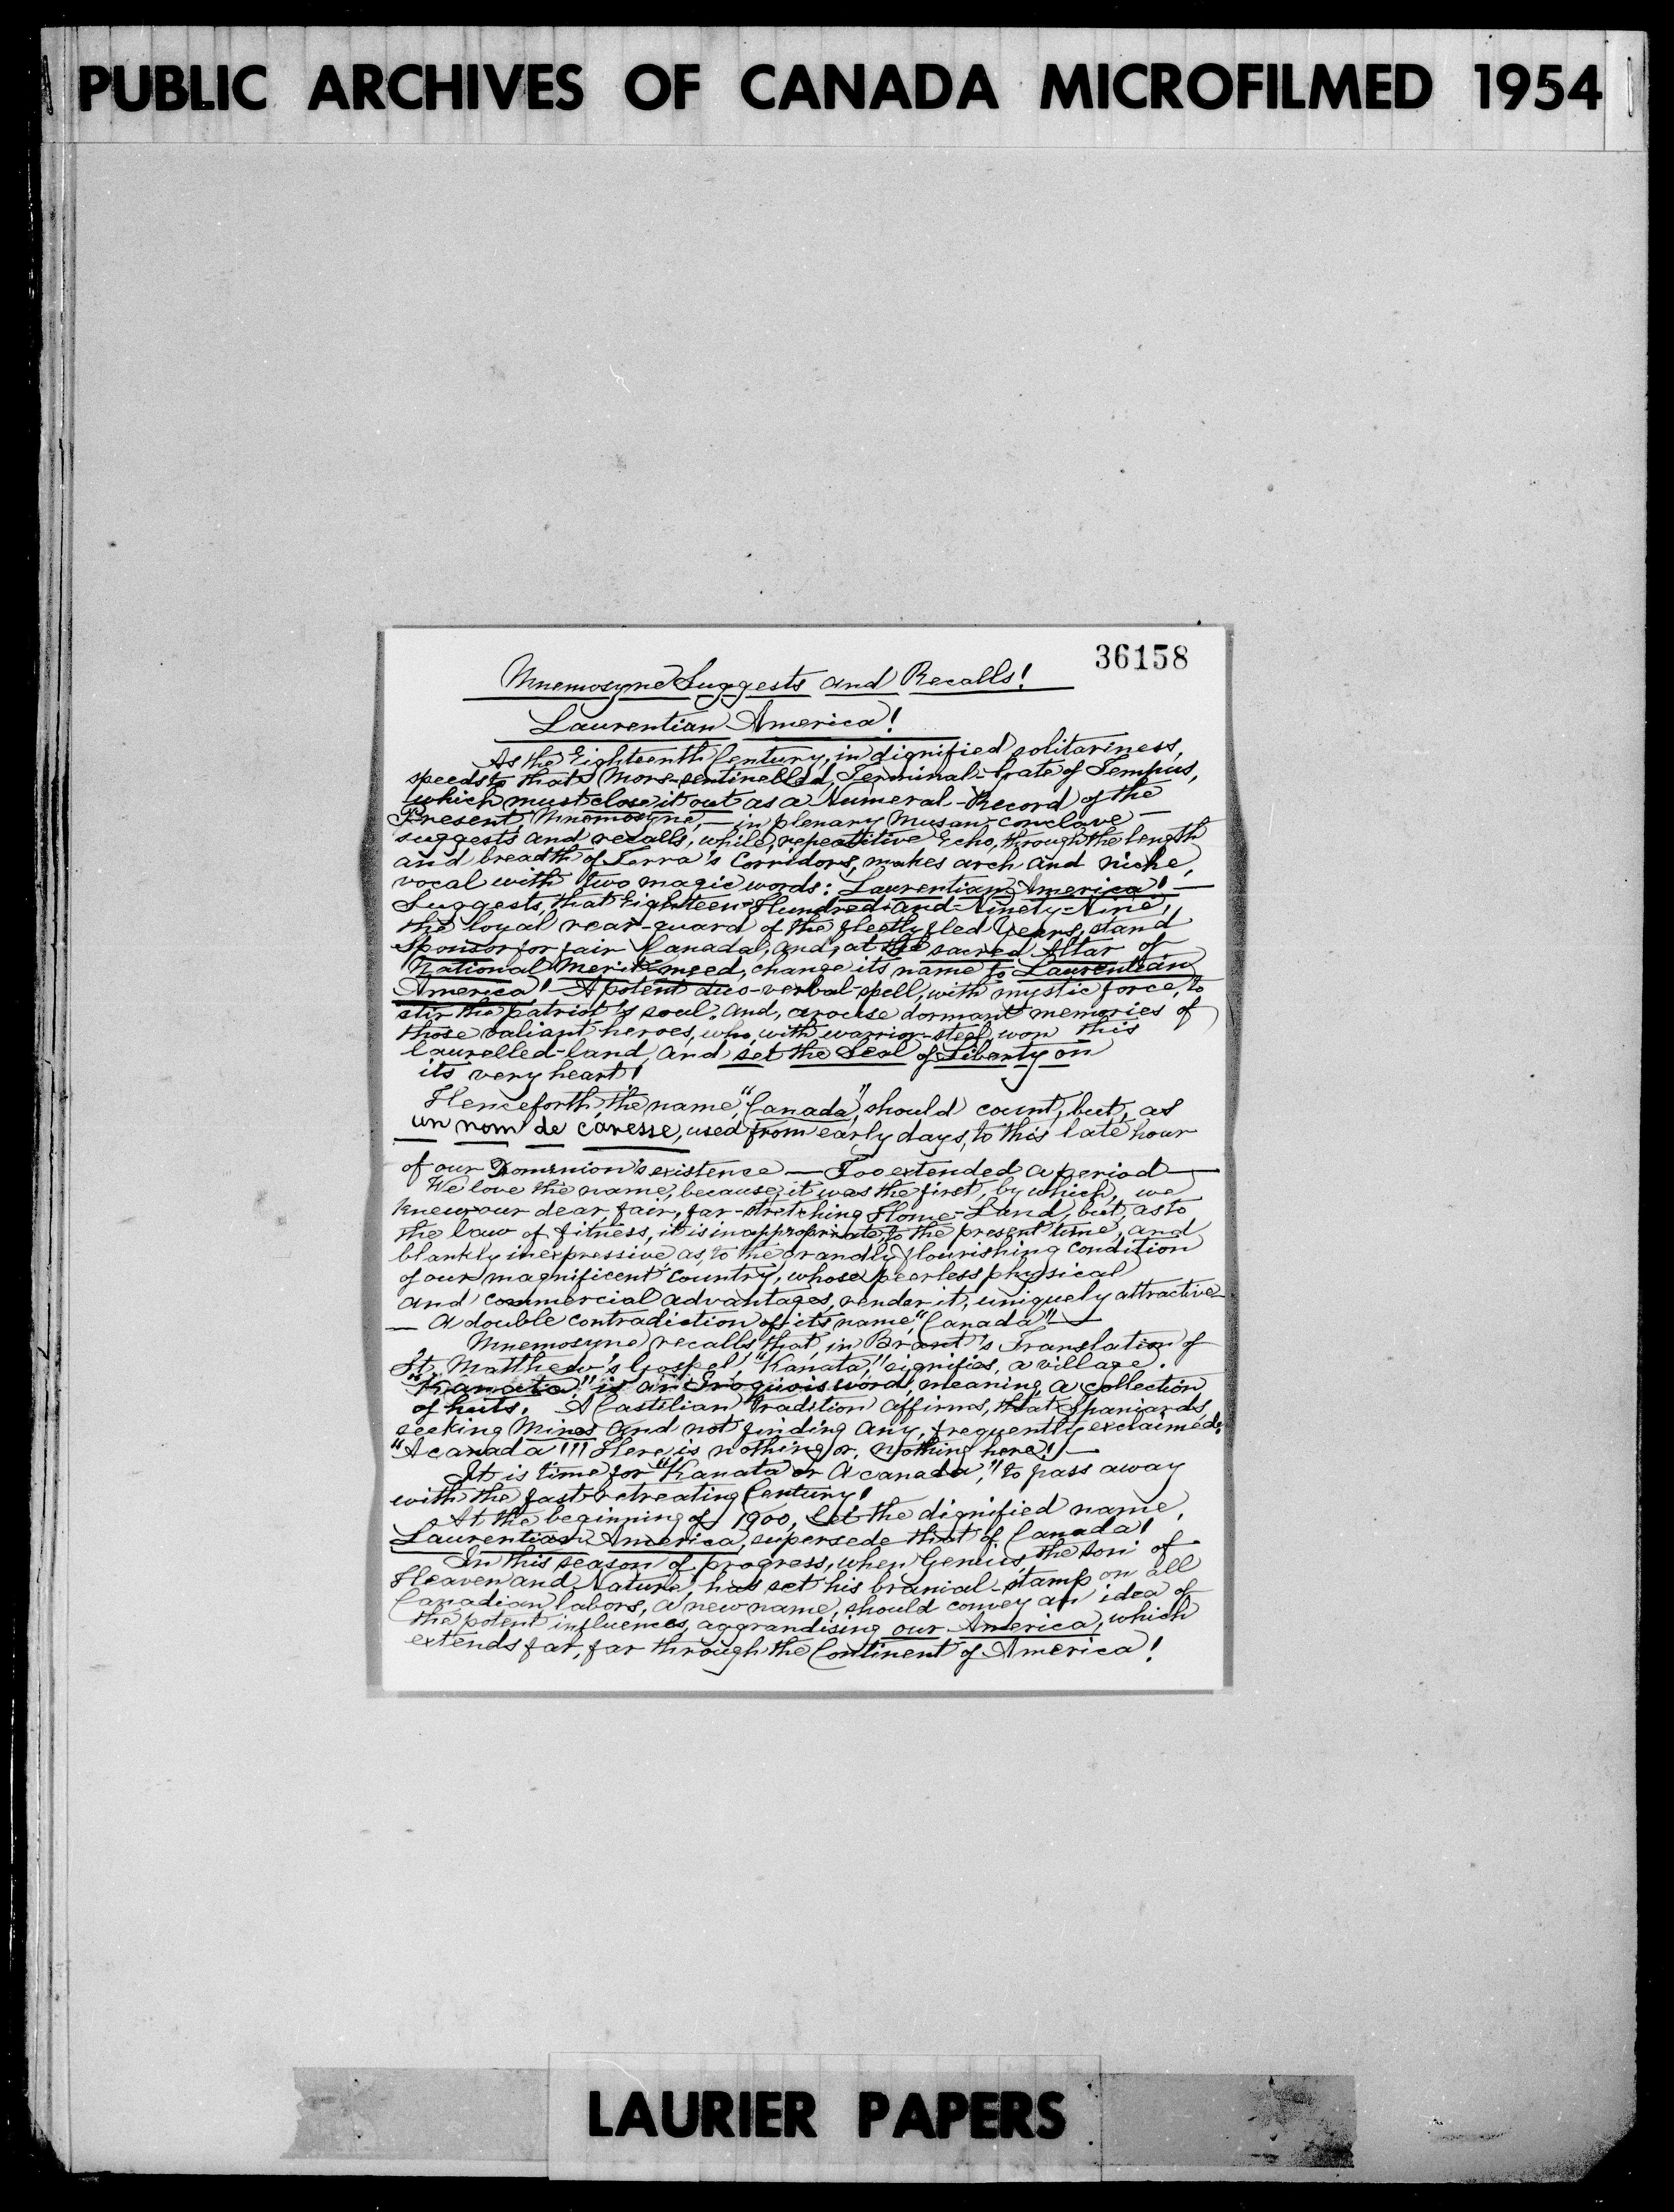 PUBLIC ARCHIVES OF CANADA MICROFILMED 1954
36158
Mnemosyne Suggests and Recalls!
Laurentian America!
As the Eighteenth Century, in dignified solitariness,
speeds to that Mors-sentinelled, Terminal-Gate of Tempus,
which must close it out as a Numeral-Record of the
Present, Mnemosyne, — in plenary Musan-conclave —
suggests and recalls, while, repeatitive Echo, through the length
and breadth of Terra's Corridors, makes arch and niche,
vocal with two magic words: Laurentian America! —
Suggests, that Eighteen-Hundred-and-Ninety-Nine,
the loyal rear-guard of the fleetly fled Years, stand
Sponsor for fair Canada, and, at the sacred Altar of
National Merit-meed, change its name to Laurentian
America! — A potent duo-verbal-spell, with mystic force, to
stir the patriot's soul, and, arouse dormant memories of
those valiant heroes, who, with warrior-steel, won this
laurelled-land, and set the Seal of Liberty on
its very heart!
Henceforth, the name, "Canada", should count, but, as
un nom de caresse, used from early days, to this late hour
of our Dominion's existence — Too extended a period —
We love the name, because, it was the first, by which, we
knew our dear, fair, far-stretching Home-Land, but, as to
the law of fitness, it is inappropriate, to the present time, and
blankly inexpressive as, to the grandly flourishing condition
of our magnificent country, whose peerless physical
and commercial advantages, render it, uniquely attractive —
— A double contradiction of its name, "Canada" —
Mnemosyne recalls that, in Brant's Translation of
St. Matthew's Gospel, "Kanata," signifies, a village.
"Kanata" is an Iroquois word, meaning, a collection
of huts. A Castilian tradition affirms, that Spaniards,
seeking Mines and not finding any, frequently exclaimed;
"Acanada"!!! Here, is nothing or, nothing here! —
It is time for "Kanata or Acanada," to pass away
with the fast-retreating Century!
At the beginning of 1900, let the dignified name,
Laurentian America, supersede that of Canada!
In this season of progress, when Genius, the son of
Heaven and Nature, has set his branial-stamp on all
Canadian labors, a new name, should convey an idea of
the potent influences, aggrandising our America, which
extends far, far through the Continent of America!
LAURIER PAPERS